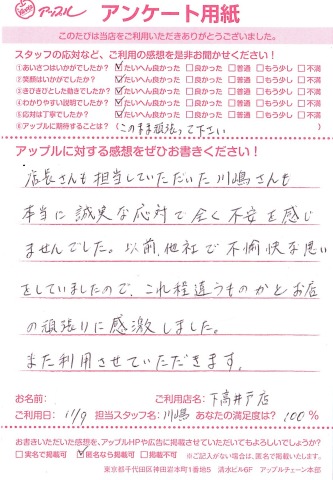 アップル アンケート用紙
このたびは当店をご利用いただきありがとうございました。
スタッフの応対など、ご利用の感想を是非お聞かせください!
①あいさつはいかがでしたか? ☑たいへん良かった □良かった □普通 □もう少し □不満
②笑顔はいかがでしたか? ☑たいへん良かった □良かった □普通 □もう少し □不満
③きびきびとした動きでしたか? ☑たいへん良かった □良かった □普通 □もう少し □不満
④わかりやすい説明でしたか? ☑たいへん良かった □良かった □普通 □もう少し □不満
⑤応対は丁寧でしたか? ☑たいへん良かった □良かった □普通 □もう少し □不満
⑥アップルに期待することは? (このまま頑張って下さい)
アップルに対する感想をぜひお書きください!
店長さんも担当していただいた川嶋さんも
本当に誠実な応対で全く不安を感じ
ませんでした。以前、他社で不愉快な思い
をしていましたので、これ程違うものかとお店
の頑張りに感激しました。
また利用させていただきます。
お名前: ご利用店名: 下高井戸店
ご利用日: 11/9 担当スタッフ名: 川嶋 あなたの満足度は? 100%
お書きいただいた感想を、アップルHPや広告に掲載させていただいてもよろしいでしょうか?
□実名で掲載可 ☑匿名なら掲載可 □掲載不可 ※ご記入がない場合は、匿名で掲載いたします。
東京都千代田区神田岩本町1番地5 清水ビル6F アップルチェーン本部